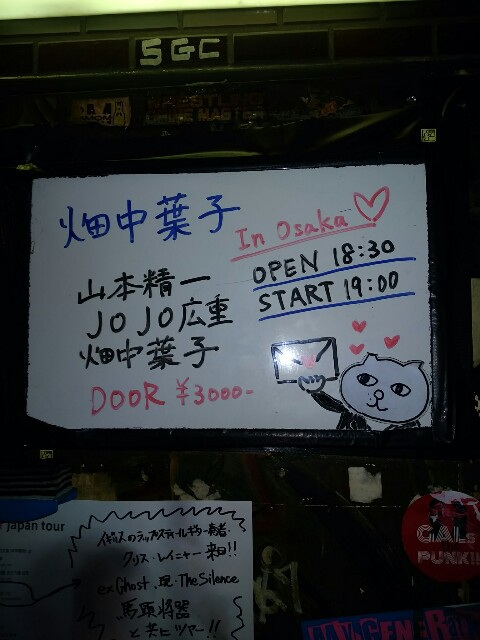 SGC
畑中葉子
In Osaka
OPEN 18:30
START 19:00
山本精一
JOJO広重
畑中葉子
DOOR ¥3000-
Japan tour
イギリスのラップスティールギター奏者・
クリス・レイニャー 来日!!
ex Ghost、現・The Silence
馬頭將器
と共にツアー!!
GALS
PUNK!!